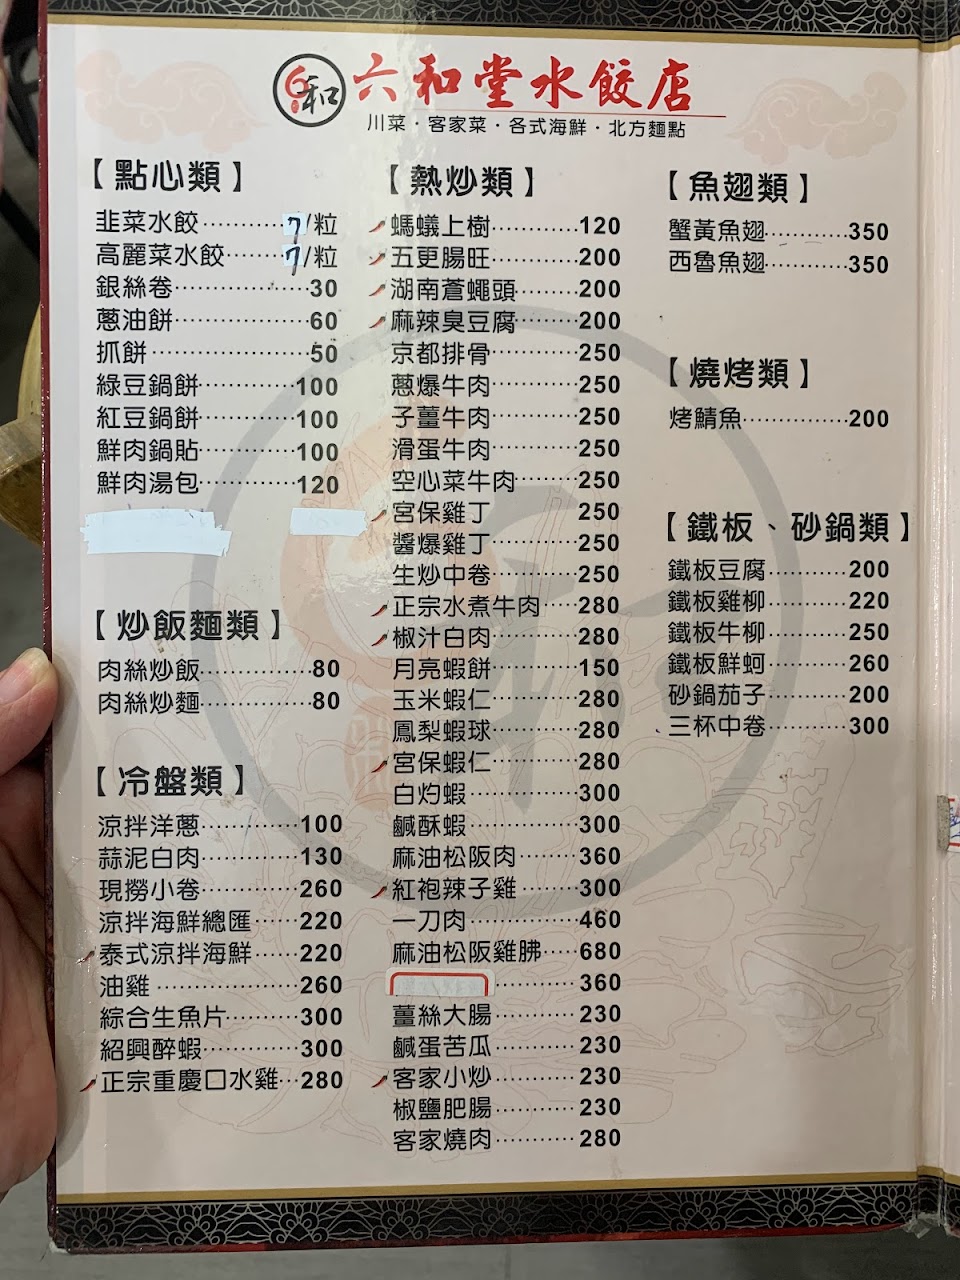 和 六和堂水餃店
川菜·客家菜·各式海鮮·北方麵點
【點心類】
韭菜水餃············7/粒
高麗菜水餃········7/粒
銀絲卷··················30
蔥油餅··················60
抓餅·····················50
綠豆鍋餅·············100
紅豆鍋餅·············100
鮮肉鍋貼·············100
鮮肉湯包·············120
【炒飯麵類】
肉絲炒飯··············80
肉絲炒麵··············80
【冷盤類】
涼拌洋蔥·············100
蒜泥白肉·············130
現撈小卷·············260
涼拌海鮮總匯······220
泰式涼拌海鮮······220
油雞···················260
綜合生魚片·········300
紹興醉蝦·············300
正宗重慶口水雞···280
【熱炒類】
螞蟻上樹···········120
五更腸旺···········200
湖南蒼蠅頭········200
麻辣臭豆腐········200
京都排骨···········250
蔥爆牛肉···········250
子薑牛肉···········250
滑蛋牛肉···········250
空心菜牛肉········250
宮保雞丁 250
醬爆雞丁···········250
生炒中卷···········250
正宗水煮牛肉·····280
椒汁白肉···········280
月亮蝦餅···········150
玉米蝦仁···········280
鳳梨蝦球···········280
宮保蝦仁···········280
白灼蝦··············300
鹹酥蝦··············300
麻油松阪肉········360
紅袍辣子雞········300
一刀肉··············460
麻油松阪雞胇·····680
··········360
薑絲大腸···········230
鹹蛋苦瓜···········230
客家小炒···········230
椒鹽肥腸···········230
客家燒肉···········280
【魚翅類】
蟹黃魚翅···········350
西魯魚翅···········350
【燒烤類】
烤鯖魚··············200
【鐵板、砂鍋類】
鐵板豆腐···········200
鐵板雞柳···········220
鐵板牛柳···········250
鐵板鮮蚵···········260
砂鍋茄子···········200
三杯中卷···········300